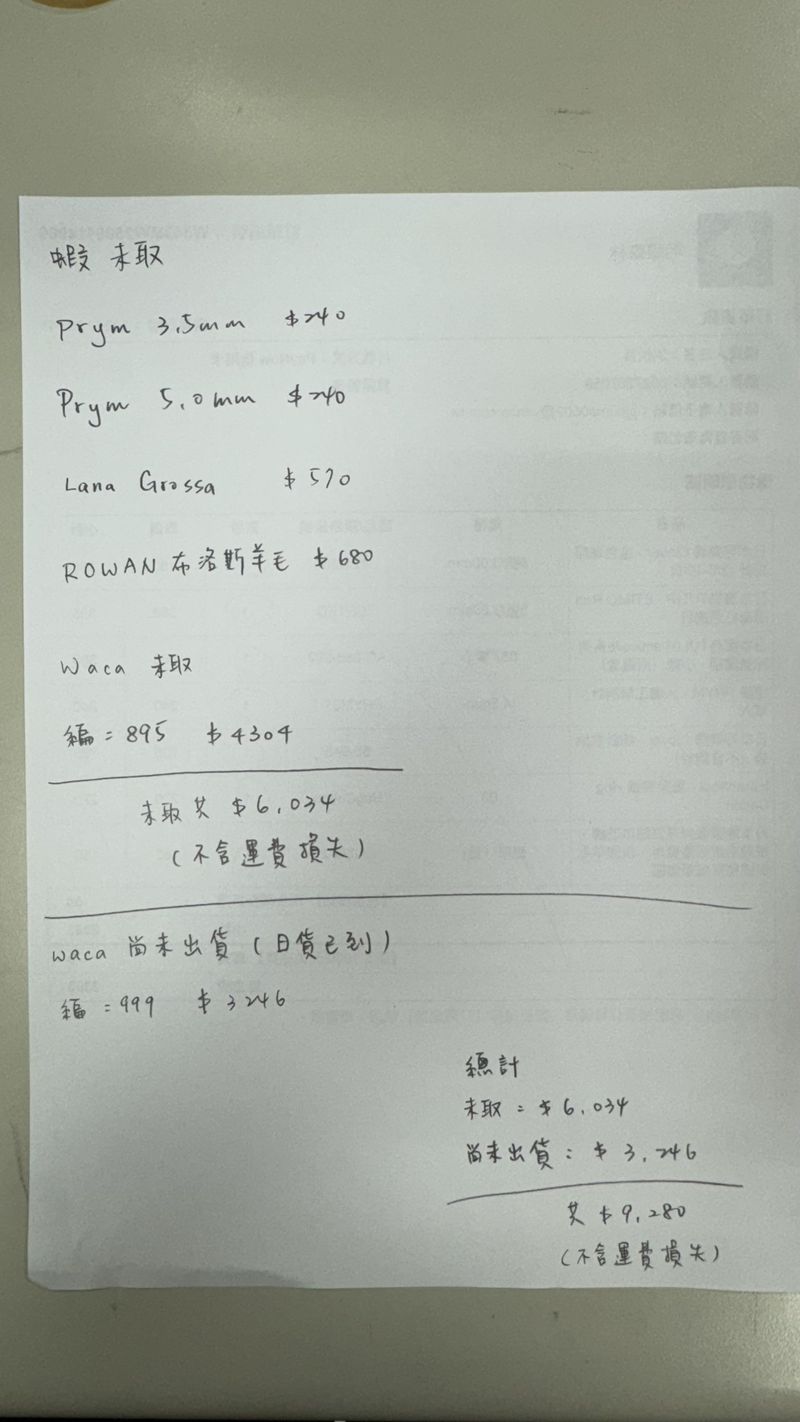 蝦 未取
Prym 3.5mm $240
Prym 5.0mm $240
Lana Grossa $570
ROWAN 布洛斯羊毛 $680
Waca 未取
編=895 $4304
未取共 $6,034
(不含運費損失)
waca 尚未出貨(日貨已到)
編=999 $3246
總計
未取:$6,034
尚未出貨:$3,246
共 $9,280
(不含運費損失)